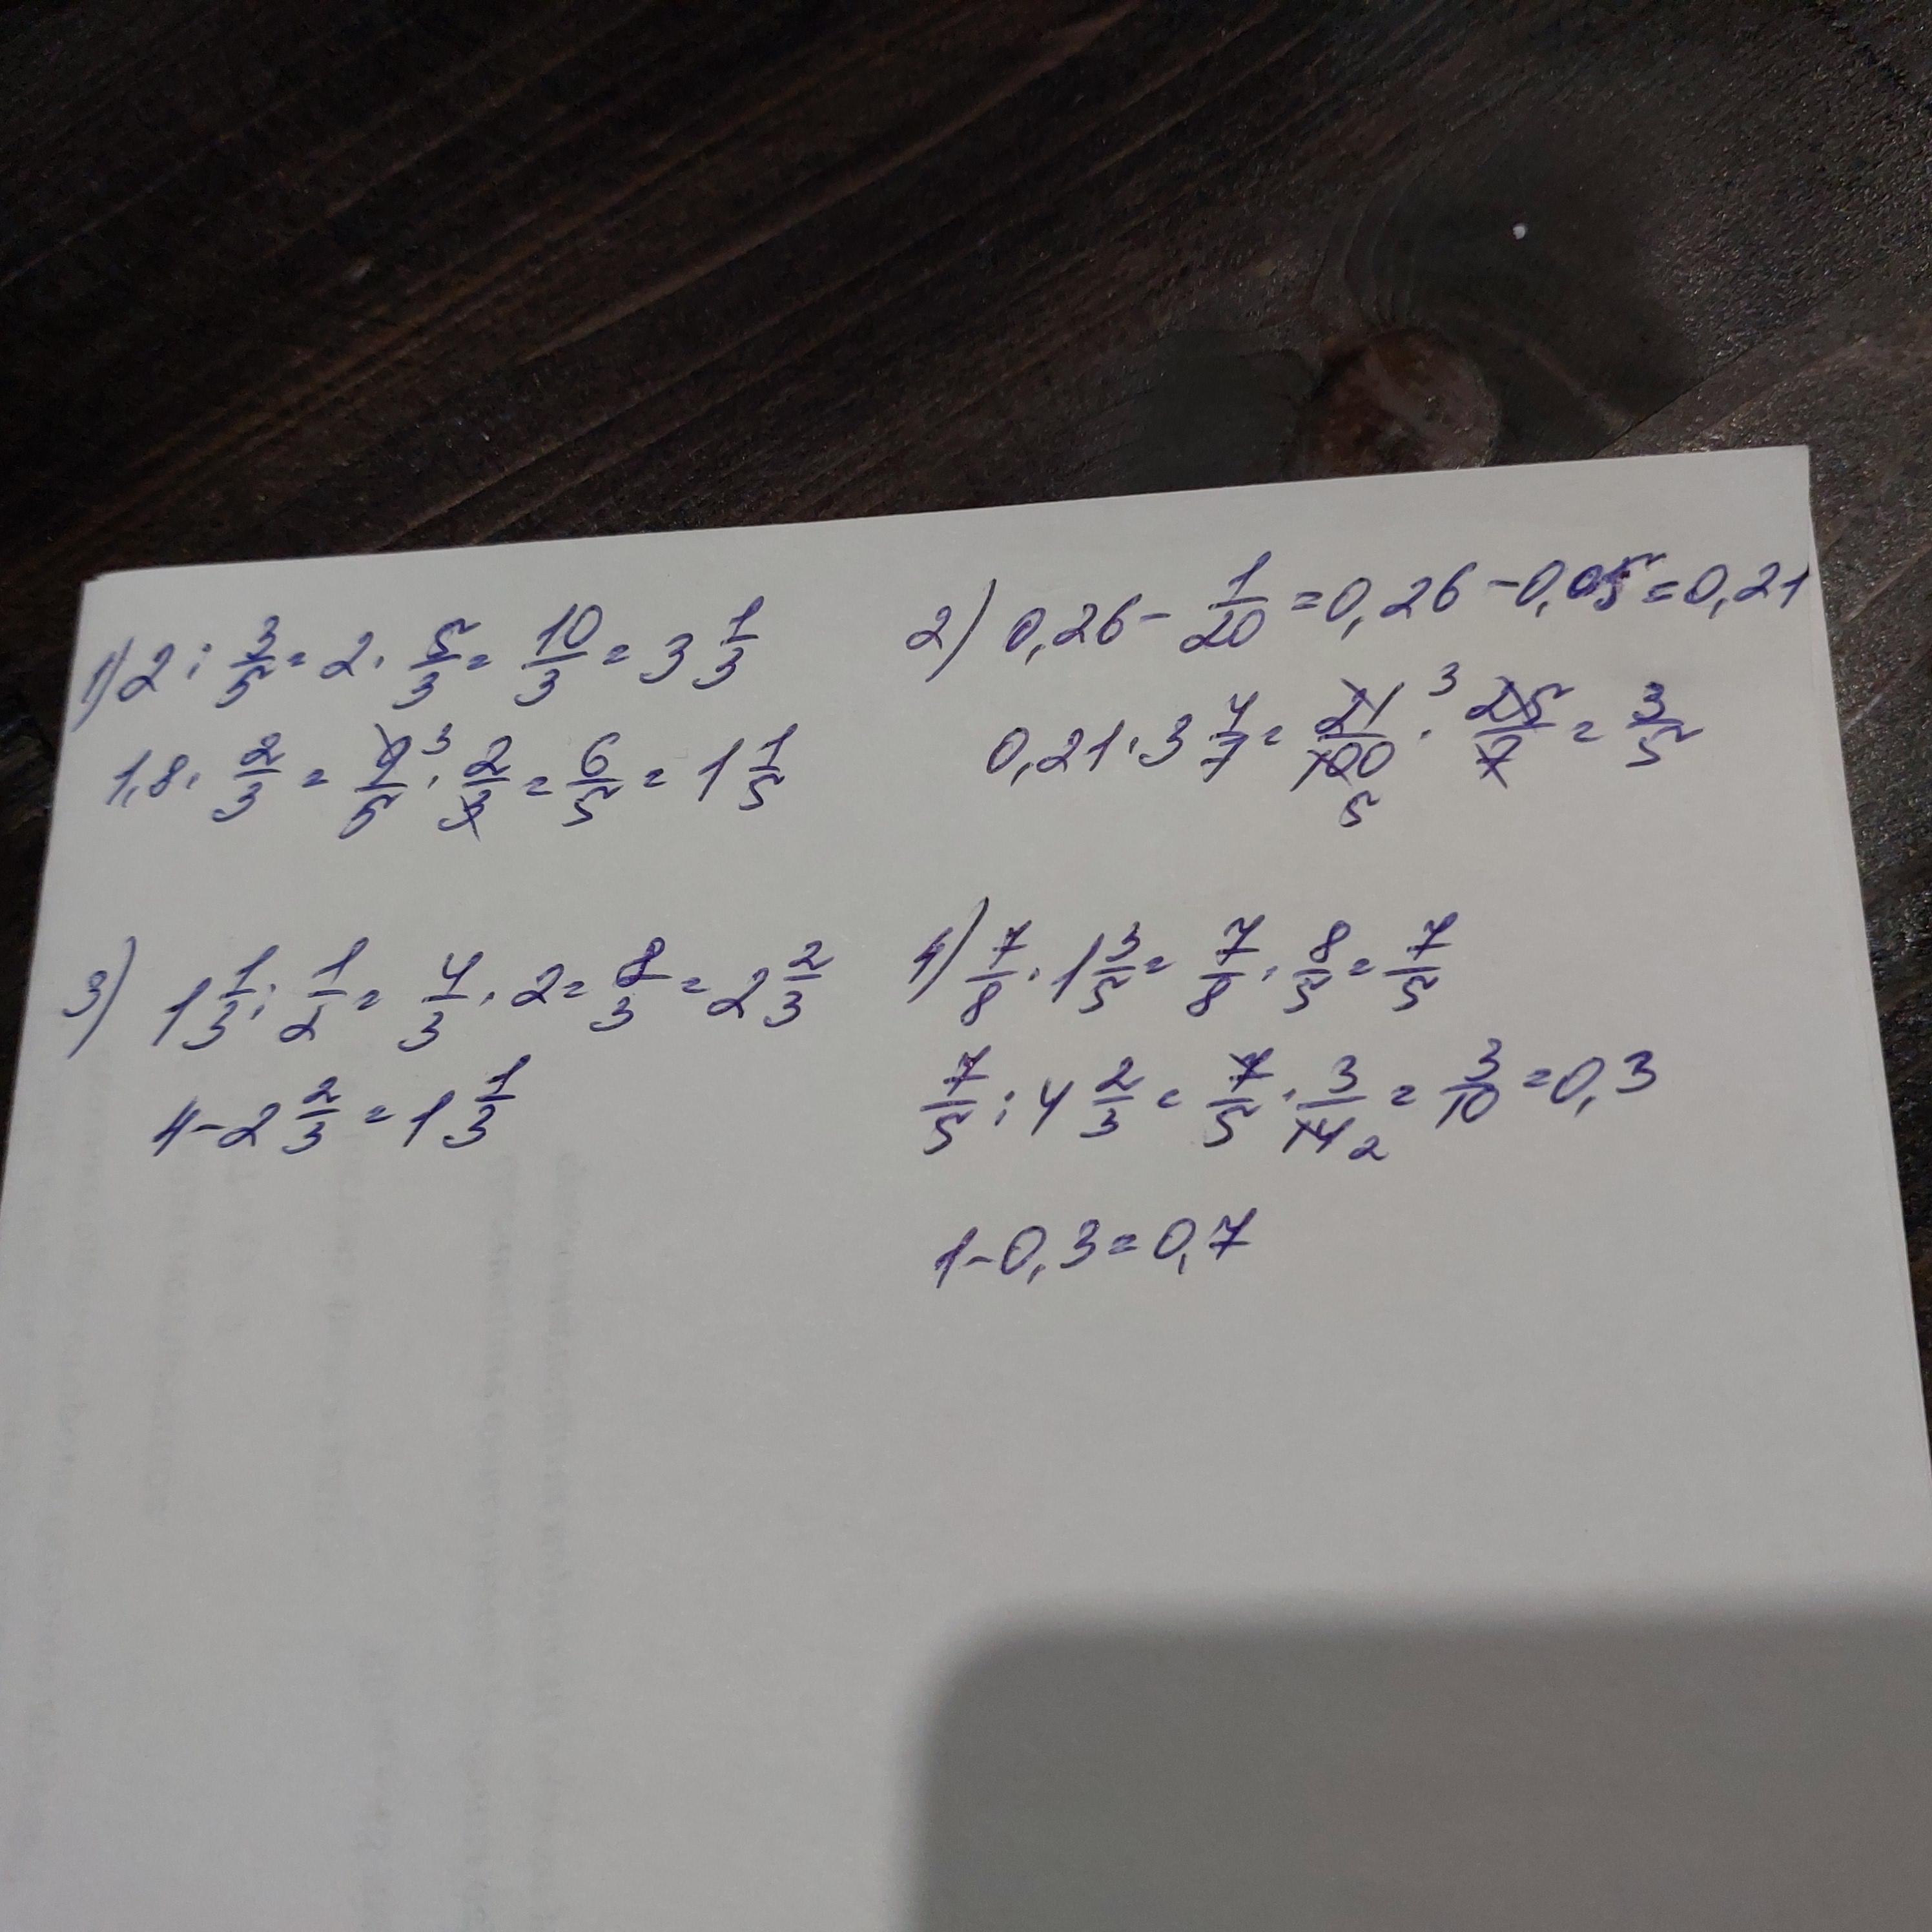 1) 2 : 3/5 = 2 · 5/3 = 10/3 = 3 1/3
1,8 · 2/3 = 9/5 ³ · 2/3 = 6/5 = 1 1/5
2) 0,26 - 1/20 = 0,26 - 0,05 = 0,21
0,21 · 3 4/7 = 21/100 ³ · 25/7 = 3/5
5
3) 1 1/3 : 1/2 = 4/3 · 2 = 8/3 = 2 2/3
4 - 2 2/3 = 1 1/3
4) 7/8 · 1 3/5 = 7/8 · 8/5 = 7/5
7/5 : 4 2/3 = 7/5 · 3/14 ₂ = 3/10 = 0,3
1 - 0,3 = 0,7